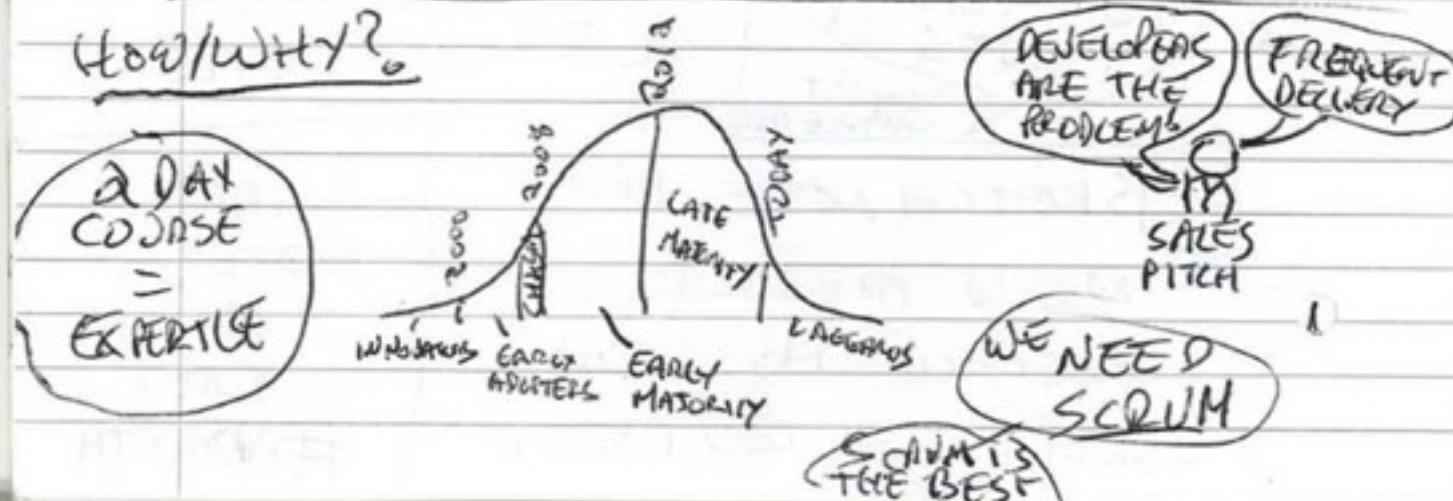 HOW/WHY?
2 DAY
COURSE
=
EXPERTISE
2000
2008
2012
TODAY
CHASM
LATE
MAJORITY
INNOVATORS
EARLY
ADOPTERS
EARLY
MAJORITY
LAGGARDS
DEVELOPERS
ARE THE
PROBLEM
FREQUENT
DELIVERY
SALES
PITCH
WE NEED
SCRUM
SCRUM IS
THE BEST